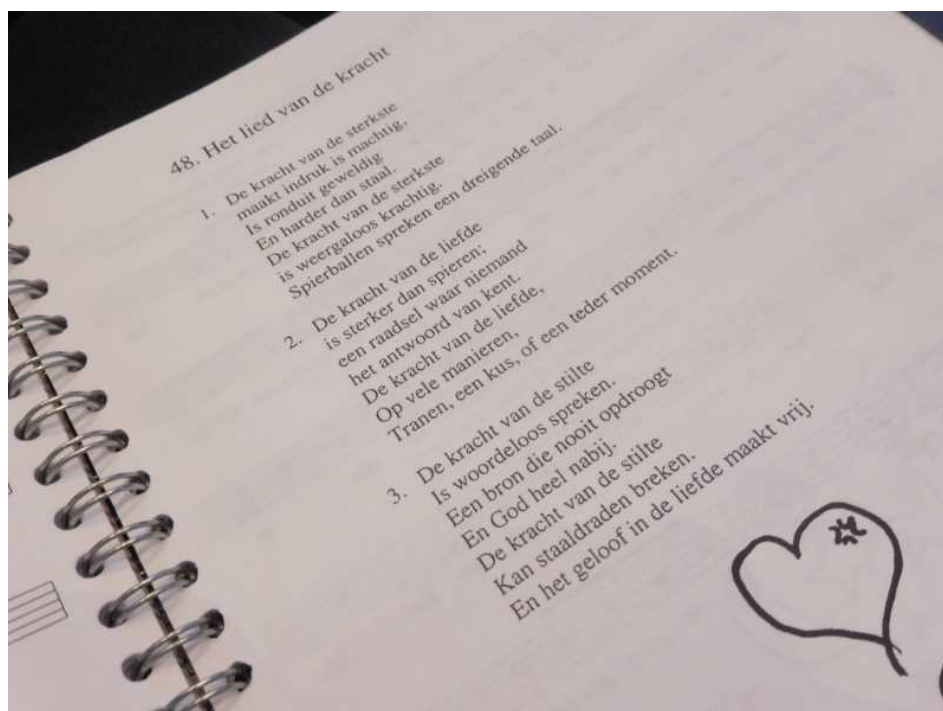 48. Het lied van de kracht
1. De kracht van de sterkste
maakt indruk is machtig,
Is ronduit geweldig
En harder dan staal.
De kracht van de sterkste
is weergaloos krachtig.
Spierballen spreken een dreigende taal.
2. De kracht van de liefde
is sterker dan spieren;
een raadsel waar niemand
het antwoord van kent.
De kracht van de liefde,
Op vele manieren,
Tranen, een kus, of een teder moment.
3. De kracht van de stilte
Is woordeloos spreken.
Een bron die nooit opdroogt
En God heel nabij.
De kracht van de stilte
Kan staaldraden breken.
En het geloof in de liefde maakt vrij.